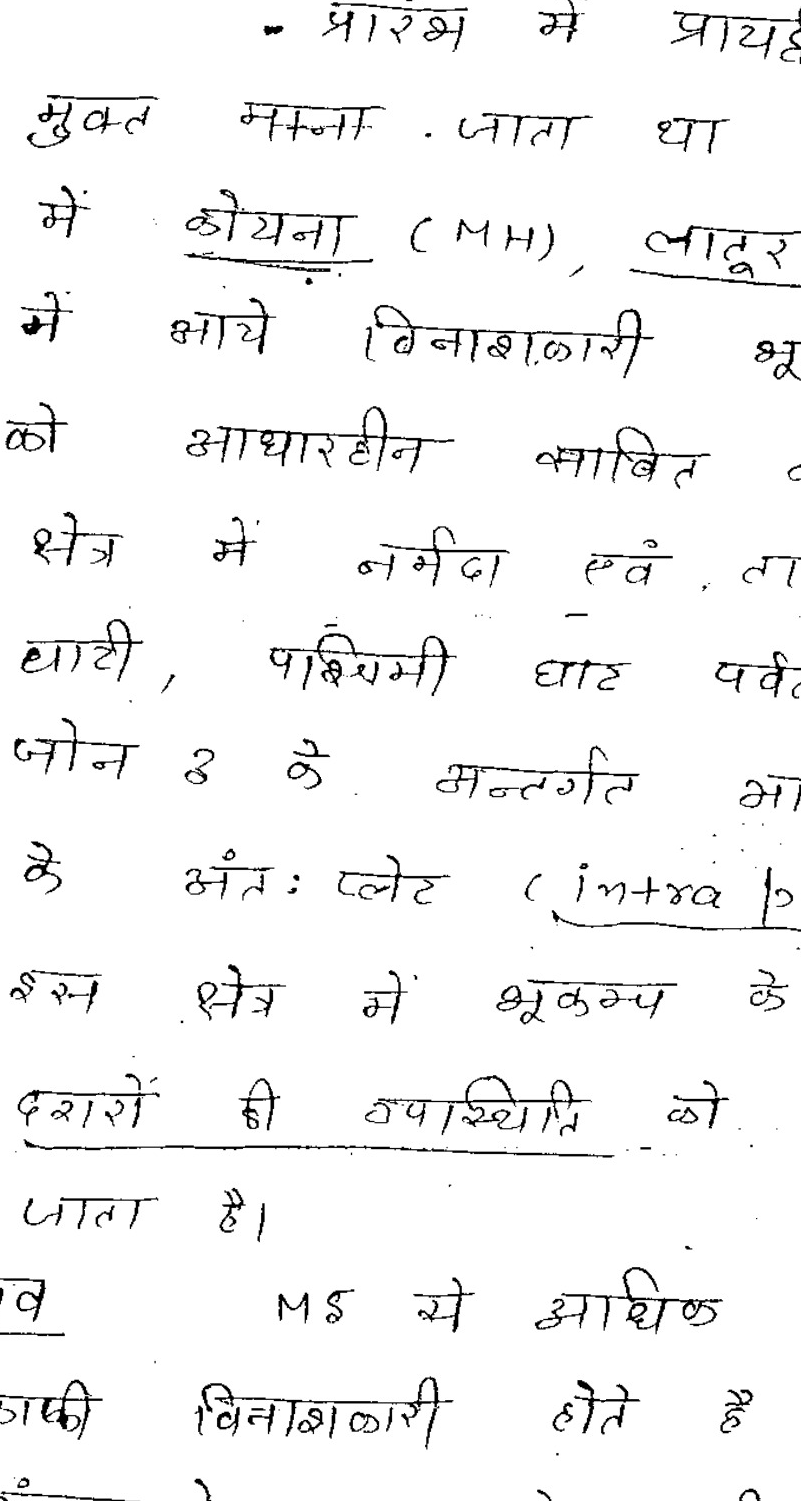 - प्रारंभ में
मुक्त माना जाता था
में कोयना (MH), लातूर
में आये विनाशकारी भू
को आधारहीन साबित
क्षेत्र में नर्मदा एवं ता
घाटी, पश्चिमी घाट पर्वत
जोन 3 के अन्तर्गत आ
के अंत: प्लेट (intra p
इस क्षेत्र में भूकम्प के
दरारों की उपस्थिति को
जाता है।
व M 5 से अधिक
काफी विनाशकारी होते है